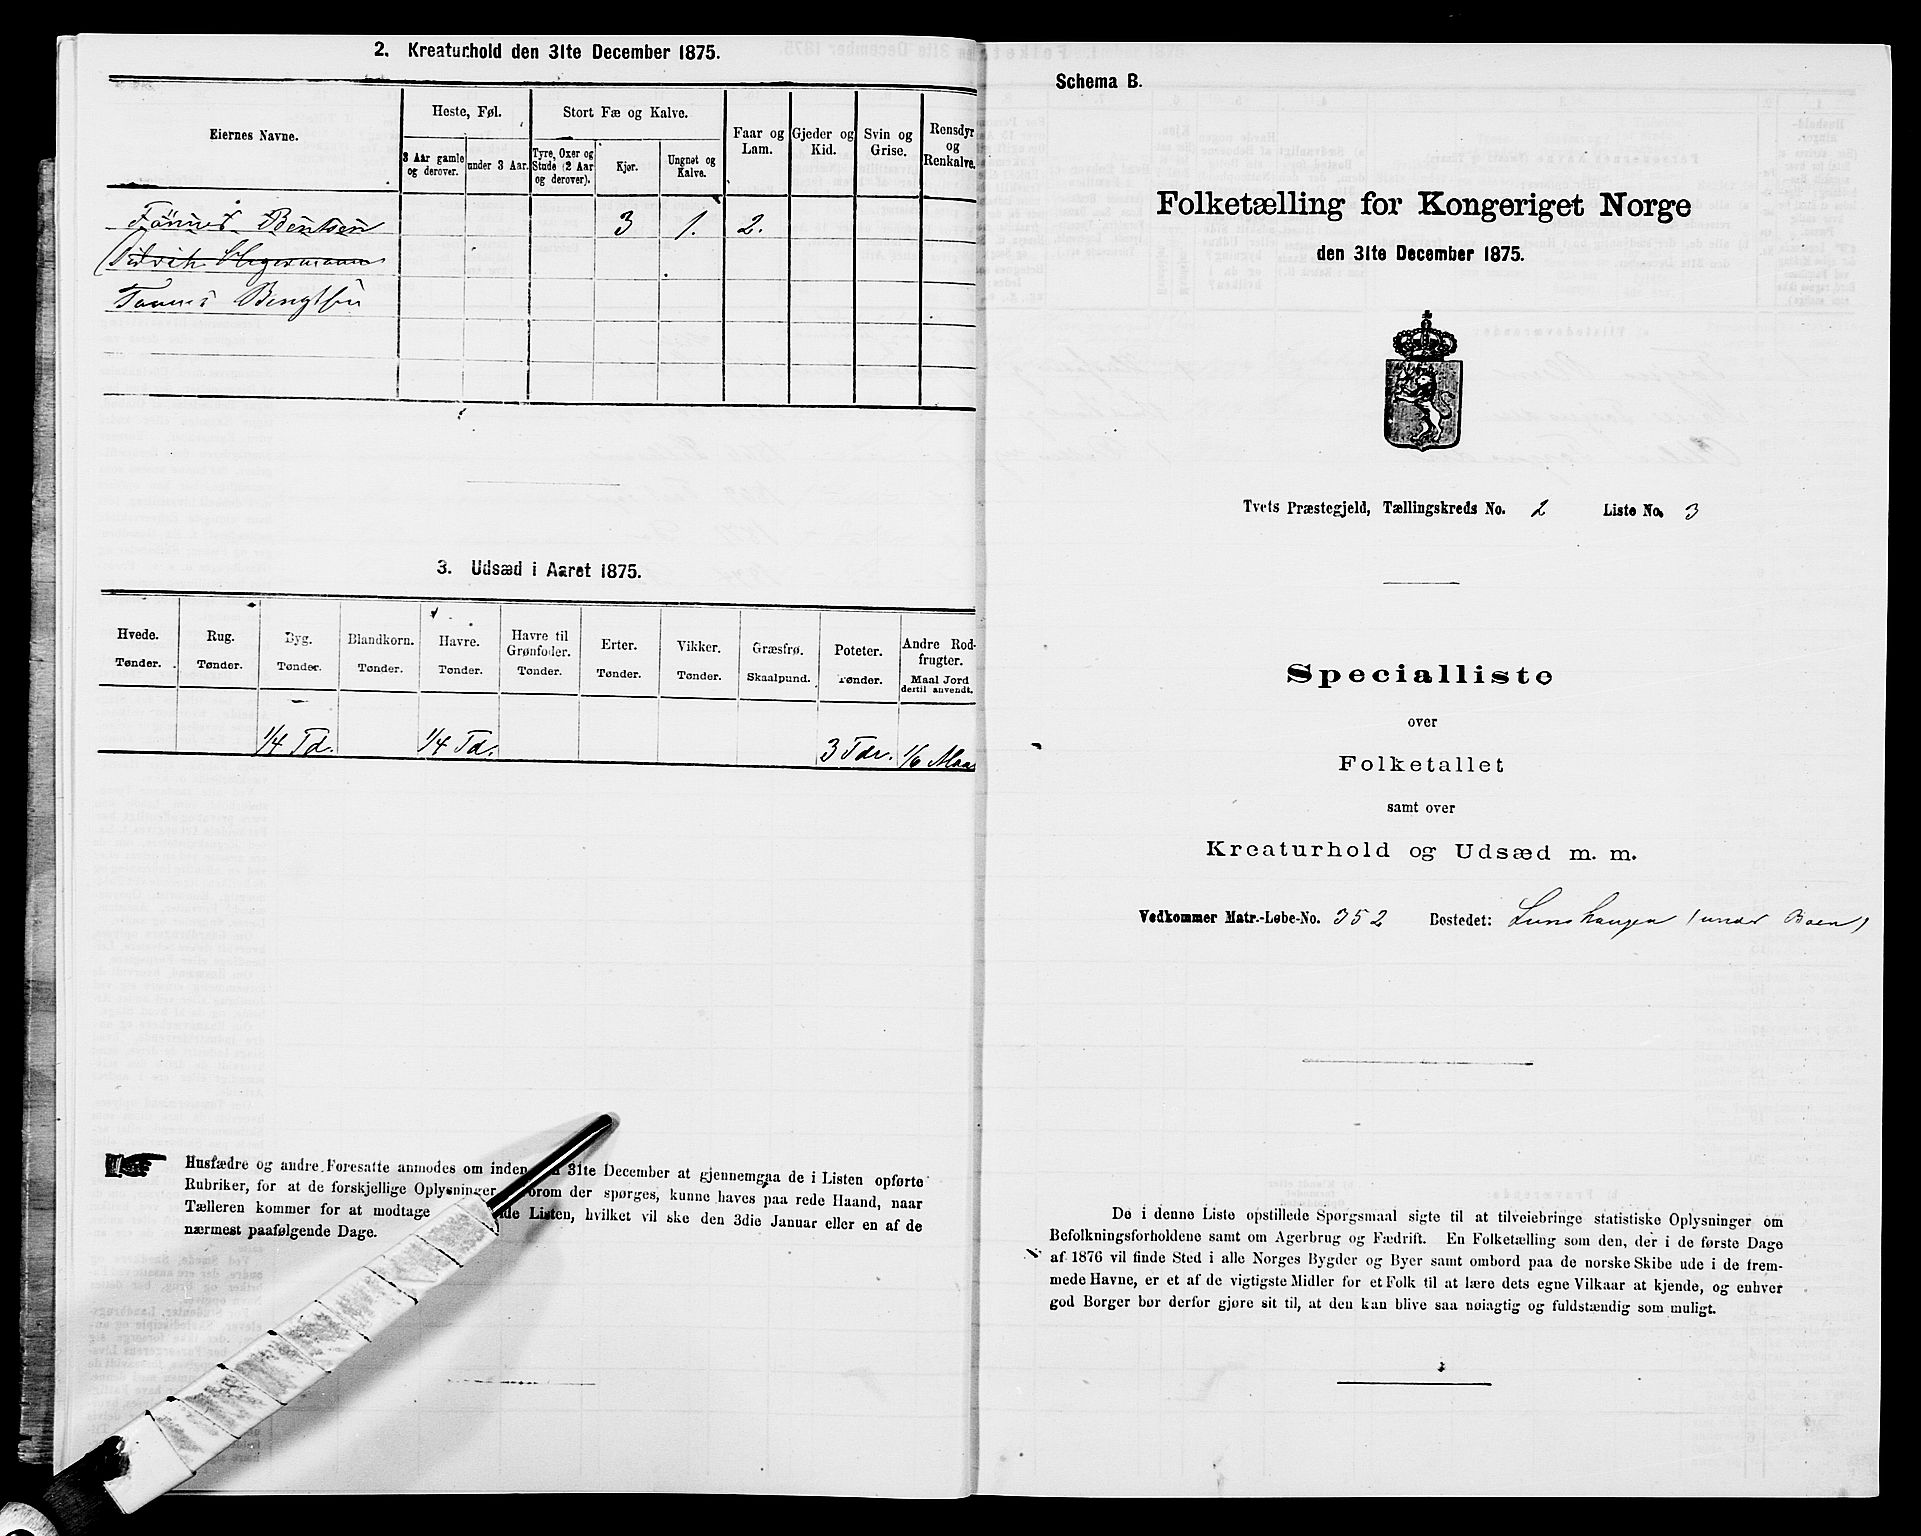 2. Kreaturhold den 31te December 1875.
Eiernes Navne.
Heste, Føl.
Stort Fæ og Kalve.
Faar og Lam.
Gjeder og Kid.
Svin og Grise.
Rensdyr og Renkalve.
3 Aar gamle og derover.
under 3 Aar.
Tyre, Oxer og Stude (2 Aar og derover).
Kjør.
Ungnøt og Kalve.
Tønnes Bentsen 3 1. 2.
Hegermann
Tønnes Bengtsen
3. Udsæd i Aaret 1875.
Hvede. Tønder.
Rug. Tønder.
Byg. Tønder.
Blandkorn. Tønder.
Havre. Tønder.
Havre til Grønfoder. Tønder.
Erter. Tønder.
Vikker. Tønder.
Græsfrø. Skaalpund.
Poteter. Tønder.
Andre Rodfrugter. Maal Jord dertil anvendt.
1/4 Td. 1/4 Td. 3 Tdr. 1/6 Maa
Husfædre og andre Foresatte anmodes om inden 31te December at gjennemgaa de i Listen opførte
Rubriker, for at de forskjellige Oplysninger, orom der spørges, kunne haves paa rede Haand, naar
Tælleren kommer for at modtage Listen, hvilket vil ske den 3die Januar eller en af de
nærmest paafølgende Dage.
Schema B.
Folketælling for Kongeriget Norge
den 31te December 1875.
Tvets Præstegjeld, Tællingskreds No. 2 Liste No. 3
Specialliste
over
Folketallet
samt over
Kreaturhold og Udsæd m. m.
Vedkommer Matr.-Løbe-No. 352 Bostedet: Lunshaugen (under Boen)
De i denne Liste opstillede Spørgsmaal sigte til at tilveiebringe statistiske Oplysninger om
Befolkningsforholdene samt om Agerbrug og Fædrift. En Folketælling som den, der i de første Dage
af 1876 vil finde Sted i alle Norges Bygder og Byer samt ombord paa de norske Skibe ude i de frem-
mede Havne, er et af de vigtigste Midler for et Folk til at lære dets egne Vilkaar at kjende, og enhver
god Borger bør derfor gjøre sit til, at den kan blive saa nøiagtig og fuldstændig som muligt.